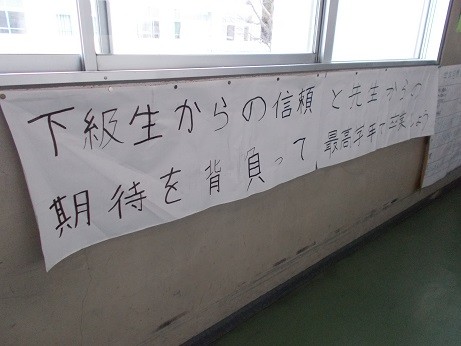 下級生からの信頼と先生からの
期待を背負って最高学年で卒業しよう